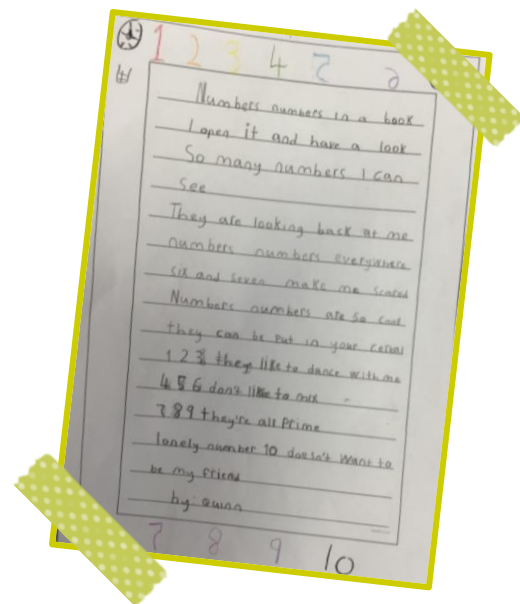 1 2 3 4 5 6
Numbers numbers in a book
I open it and have a look
So many numbers I can
see
They are looking back at me
numbers numbers everywhere
six and seven make me scared
Numbers numbers are so cool
they can be put in your cereal
1 2 3 they like to dance with me
4 5 6 don't like to mix
7 8 9 they're all Prime
lonely number 10 doesn't want to
be my friend
by: Quinn
7 8 9 10